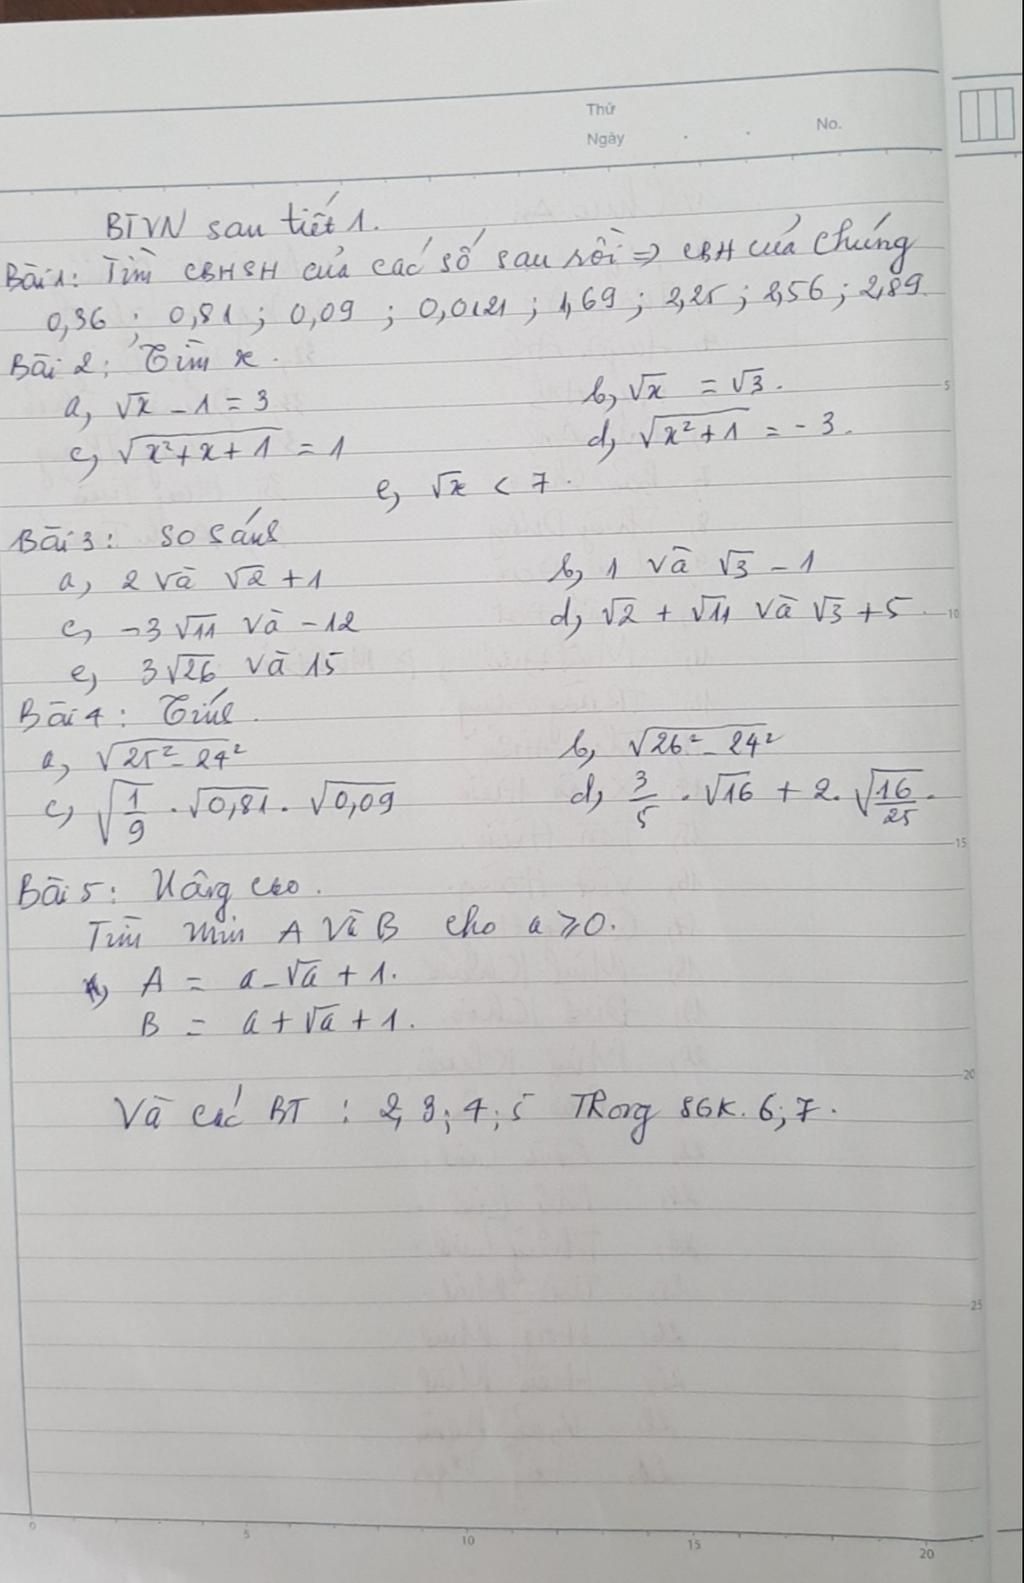 Thứ
Ngày . . No.
BTVN sau tiết 1.
Bài 1: Tìm CBHSH của các số sau rồi => CBH của chúng
0,36 ; 0,81 ; 0,09 ; 0,0121 ; 1,69 ; 2,25 ; 2,56 ; 2,89.
Bài 2: Tìm x.
a, √x - 1 = 3 b, √x = √3.
c, √(x²+x+1) = 1 d, √(x²+1) = -3.
e, √x < 7.
Bài 3: so sánh
a, 2 và √2 + 1 b, 1 và √3 - 1
c, -3√11 và -12 d, √2 + √11 và √3 + 5.
e, 3√26 và 15
Bài 4: Tính.
a, √(25² - 24²) b, √(26² - 24²)
c, √(1/9) . √0,81 . √0,09 d, 3/5 . √16 + 2. √(16/25).
Bài 5: Nâng cao.
Tìm min A và B cho a ≥ 0.
A = a - √a + 1.
B = a + √a + 1.
Và các BT : 2, 3; 4; 5 TRong SGK. 6; 7.
5
10
15
20
25
0 5 10 15 20